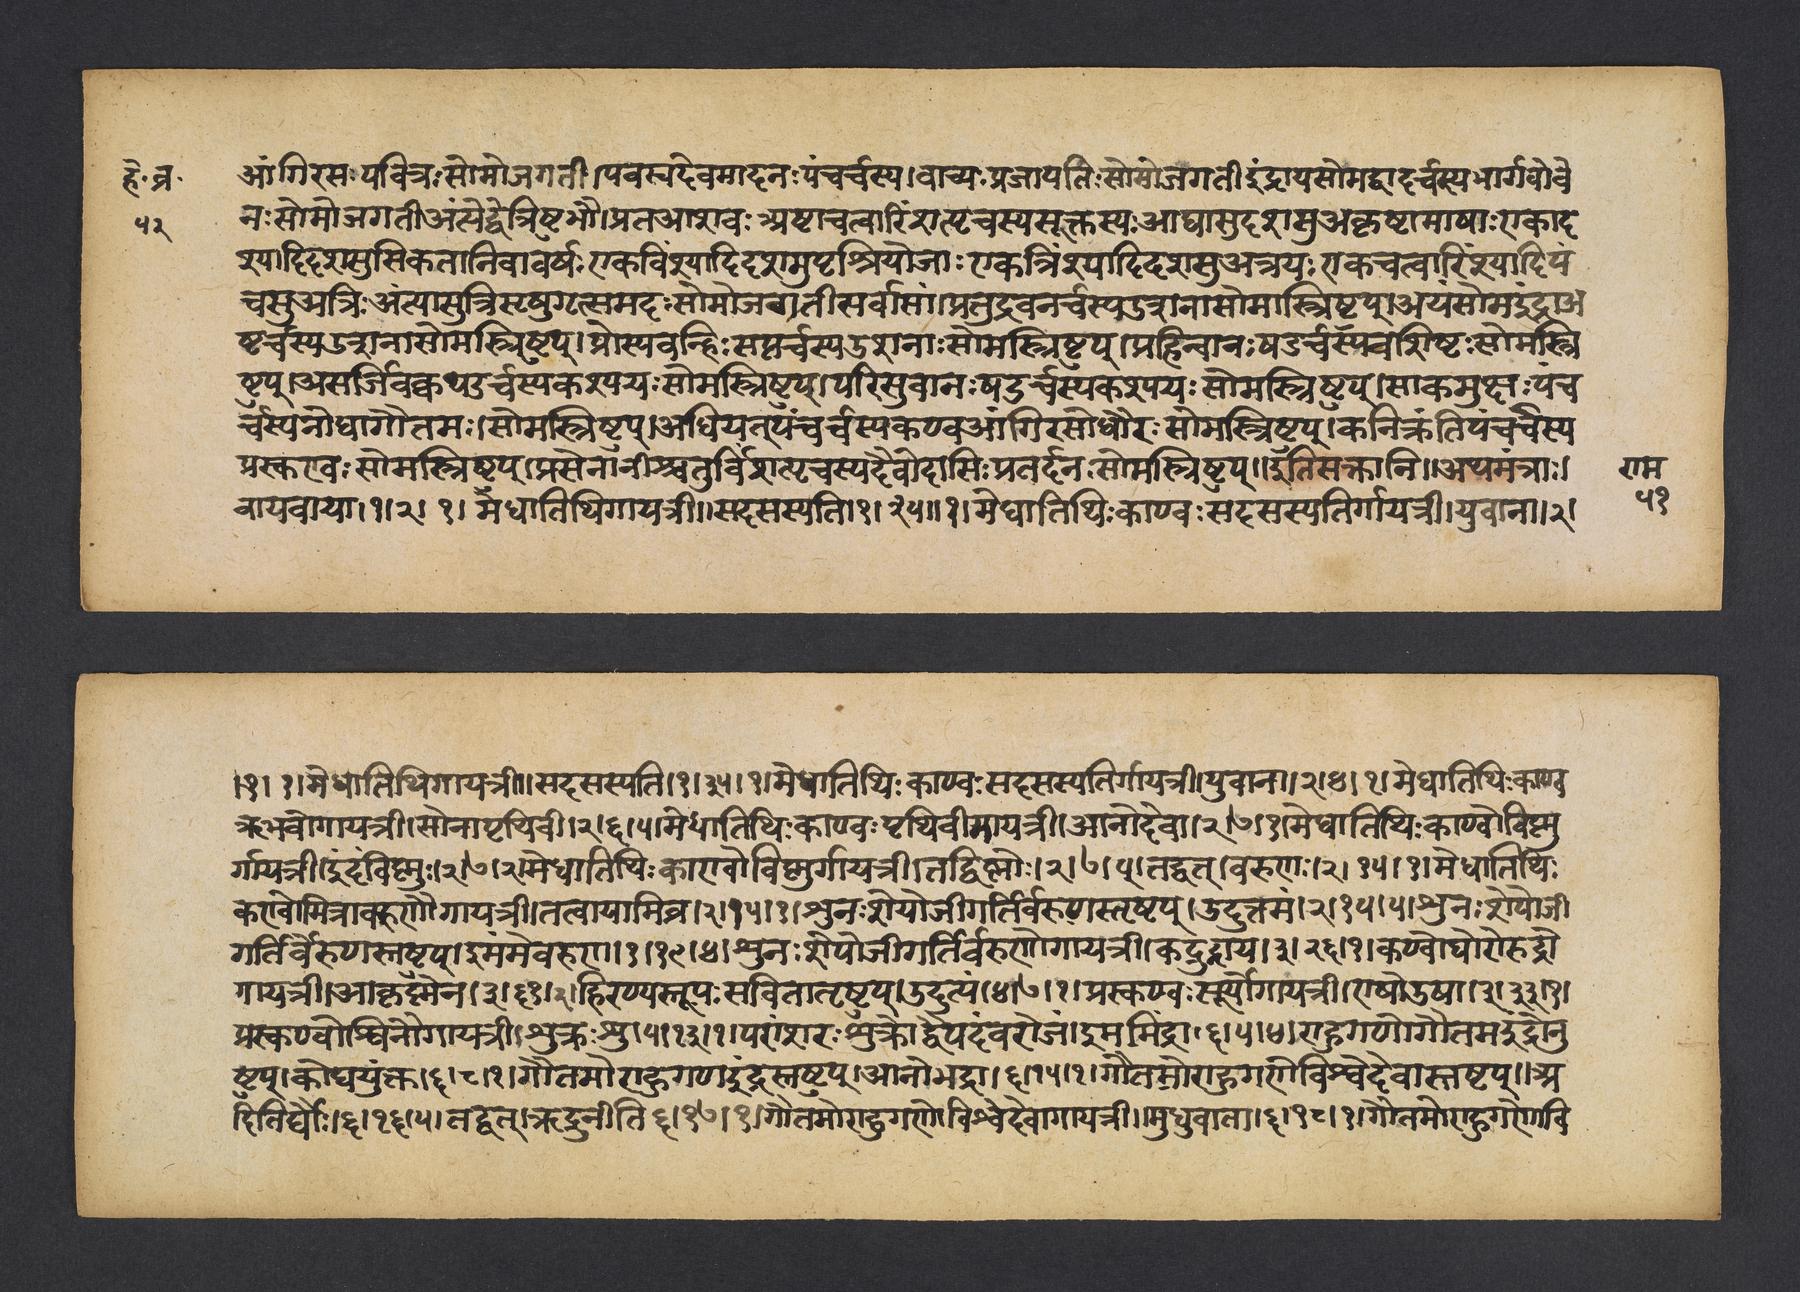 है॰ व्र॰
५२
आंगिरसः पवित्रः सोमोजगती।पवस्वदेवमादनः पंचर्चस्य।वाच्यः प्रजापतिः सोमोजगतीइंद्रायसोमद्वादर्चस्यभार्गवोवे
नः सोमोजगतीअंत्येद्वेत्रिष्टभौ।प्रतआशवः अष्टाचत्वारिंशत्यृचस्यसूक्तस्यः आद्यासुदशसुअकृष्टामाषाः एकाद
श्यादिदशसुसिकतानिवावर्षः एकविंश्यादिदशसुपृश्नियोजाः एकत्रिंश्यादिदशसुअत्रयः एकचत्वारिंश्यादिपं
चसुअत्रिः अंत्यासुत्रिसृषुगृत्समदः सोमोजगतीसर्वासां।प्रतुद्रवनर्चस्यउशनासोमास्त्रिष्टप्।अयंसोमइंद्राअ
ष्टर्चस्यउशनासोमस्त्रिष्टप्।प्रोस्यवन्हिः सप्तर्चस्यउशनाः सोमस्त्रिष्टप्।प्रहिन्वानः षडर्चस्यवशिष्टः सोमस्त्रि
ष्टप्।असर्जिवक्वथडर्चस्यकश्यपयः सोमस्त्रिष्टप्।परिसुवानः षडर्चस्यकश्यपयः सोमस्त्रिष्टप्।साकमुक्षः पंच
र्चस्यनोधागौतमः।सोमस्त्रिष्टप्।अधियत्पंचर्चस्यकण्वआंगिरसोधौरः सोमस्त्रिष्टप्।कनिक्रंतिपंचर्चस्य
प्रस्कण्वः सोमस्त्रिष्टप्।प्रसेनानीश्चतुर्विंशत्यृचस्यदैवोदासिः प्रतर्दनः सोमस्त्रिष्टप्॥इतिसक्तानि॥अथमंत्राः।
राम
५१
वायवाया।१।२। १। मेधातिथिगायत्री॥सदसस्पति।१।३५॥१।मेधातिथिः काण्वः सदसस्पतिर्गायत्री।युवाना।२।
।१। १।मेधातिथिगायत्री॥सदसस्पति।१।३५।१।मेधातिथिः काण्वः सदसस्पतिर्गायत्री।युवाना।२।४।१।मेधातिथिः काण्व
ऋभवोगायत्री।सोनापृथिवी।२।६।५।मेधातिथिः काण्वः पृथिवीगायत्री।आनोदेवा।२।७।१।मेधातिथिः काण्वोविष्णु
र्गायत्री।इदंविष्णुः।२।७।२।मेधातिथिः काण्वोविष्णुर्गायत्री।तद्विष्णोः।२।७।५।तद्वत्।वरुणः।२।१५।१।मेधातिथिः
कण्वोमित्रावरुणौगायत्री।तत्वायामिव्र।२।१५।१।शुनःशेपोजीगर्तिर्वरुणस्तृष्टप्।उदुत्तमं।२।१५।५।शुनःशेपोजी
गर्तिर्वरुणस्तृष्टप्।इमंमेवरुण।१।१९।४।शुनःशेपोजीगर्तिर्वरुणोगायत्री।कद्रुद्राय।३।२६।१।कण्वोघोरोरुद्रो
गायत्री।आकृष्णेन।३।६१।२।हिरण्यस्तूपः सवितातृष्टप्।उदुत्यं।४।७।१।प्रस्कण्वः सूर्योगायत्री।एषोउषा।३।३३।१।
प्रस्कण्वोश्विनौगायत्री।शुक्रः शु।५।१३।१।पराशरः शुक्रोद्वैपदंवरोजं।इममिंद्रा।६।५।४।राहुगणोगौतमइंद्रोनु
ष्टप्।कोघयुंक्त।६।८।१।गौतमोराहुगणइंद्रस्तृष्टप्।आनोभद्रा।६।१५।१।गौतमोराहुगणोविश्वेदेवास्तृष्टप्॥अ
दितिर्द्यौः।६।१६।५।तद्वत्।ऋदुनीति६।१७।१।गौतमोराहुगणोविश्वेदेवागायत्री।मधुवाता।६।१८।१।गौतमोराहुगणोवि